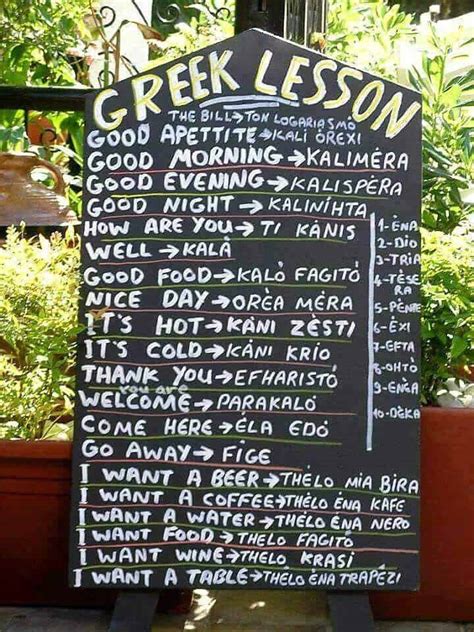 GREEK LESSON
THE BILL→TON LOGARIASMO
GOOD APETTITE→KALÍ ÓREXI
GOOD MORNING→KALIMÉRA
GOOD EVENING→KALISPÉRA
GOOD NIGHT→KALINÍHTA
HOW ARE YOU→TI KÁNIS
WELL→KALÁ
GOOD FOOD→KALÓ FAGITÓ
NICE DAY→ORÉA MÉRA
IT'S HOT→KÁNI ZÉSTI
IT'S COLD→KÁNI KRÍO
THANK YOU→EFHARISTÓ
you are
WELCOME→PARAKALÓ
COME HERE→ÉLA EDÓ
GO AWAY→FIGE
I WANT A BEER→THÉLO MIA BIRA
I WANT A COFFEE→THÉLO ÉNA KAFE
I WANT A WATER→THÉLO ÉNA NERO
I WANT FOOD→THELO FAGITÓ
I WANT WINE→THELO KRASI
I WANT A TABLE→THELO ÉNA TRAPÉZI
1-ÉNA
2-DIO
3-TRIA
4-TÉSE
RA
5-PÉNTE
6-ÉXI
7-EFTA
8-OKTO
9-ENÉA
10-DÉKA